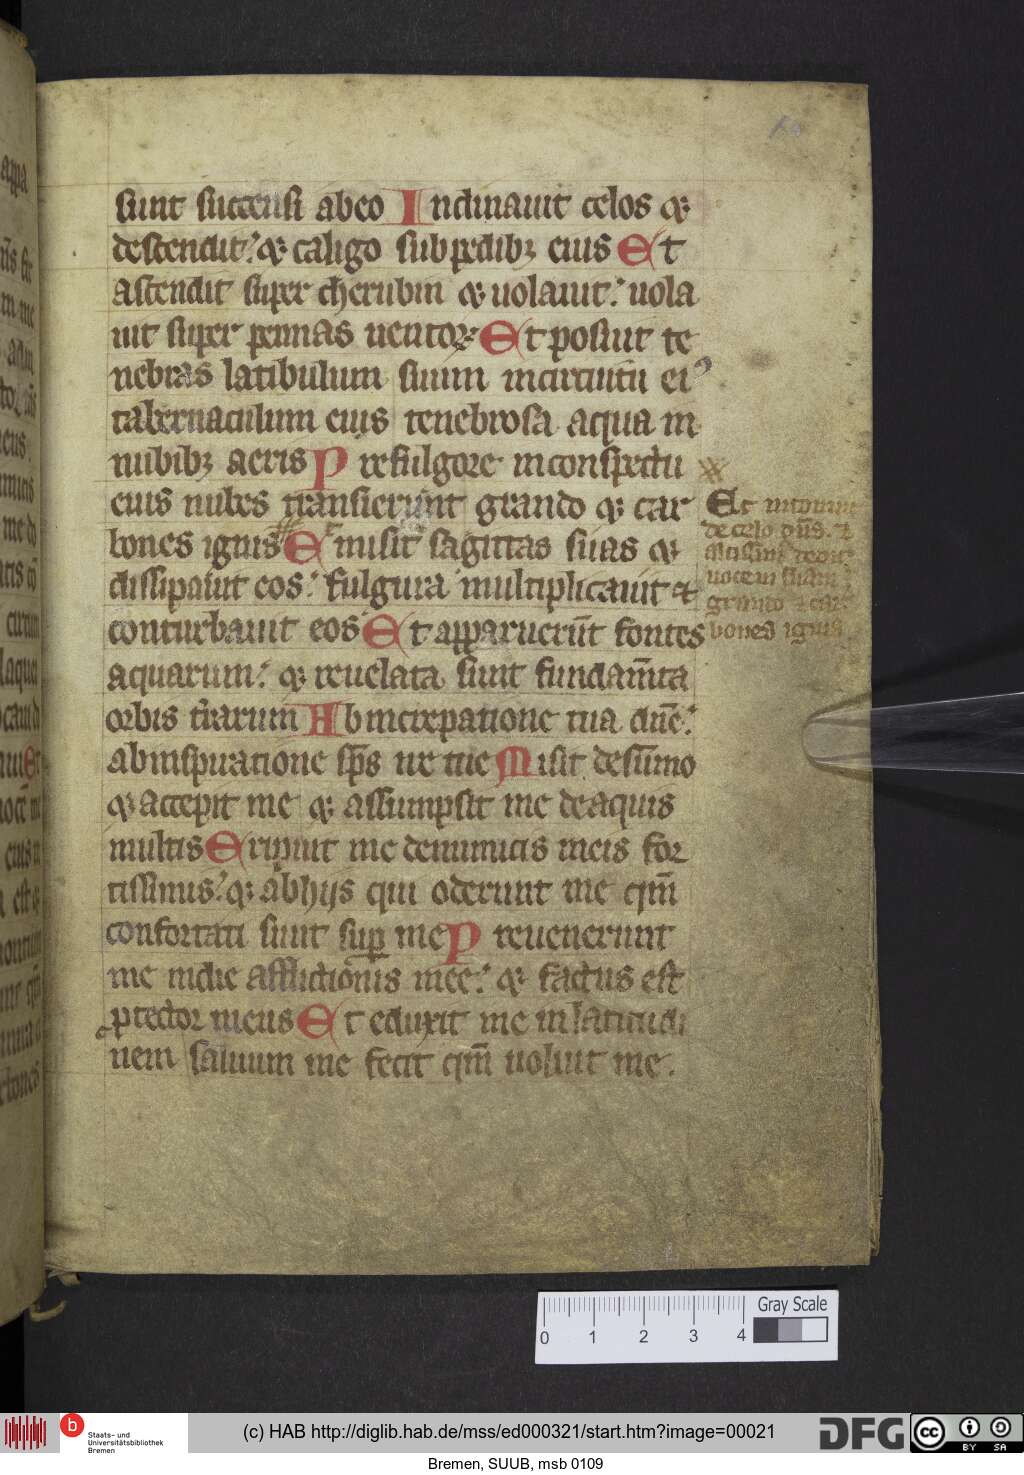 sunt succensi abeo Inclinauit celos ⁊
descendit: ⁊ caligo subpedibꝫ eius Et
ascendit super cherubin ⁊ uolauit: uola
uit super pennas uentoꝝ Et posuit te
nebras latibulum suum incircuitu eiꝰ
tabernaculum eius tenebrosa aqua in
nubibꝫ aeris Prefulgore inconspectu
eius nubes transierunt grando ⁊ car
bones ignis Emisit sagittas suas ⁊
dissipauit eos: fulgura multiplicauit et
conturbauit eos Et apparuerūt fontes
aquarum: ⁊ reuelata sunt fundam̄ta
orbis t̄rarum Abincrepatione tua dn̄e:
abinspiratione sp̄s ire tue Misit desūmo
⁊ accepit me ⁊ assumpsit me deaquis
multis Eripuit me deinimicis meis for
tissimis: ⁊ abhijs qui oderunt me qm̄
confortati sunt suꝑ me Preuenerunt
me indie afflictionis mee: ⁊ factus est
ꝓtector meus Et eduxit me inlatitudi
nem saluum me fecit qm̄ uoluit me.
Et intonuit
de celo dn̄s. ⁊
altissimꝰ dedit
uocem suam
grando ⁊ car
bones ignis
0 1 2 3 4
Gray Scale
b
Staats- und
Universitätsbibliothek
Bremen
(c) HAB http://diglib.hab.de/mss/ed000321/start.htm?image=00021
DFG
cc BY SA
Bremen, SUUB, msb 0109